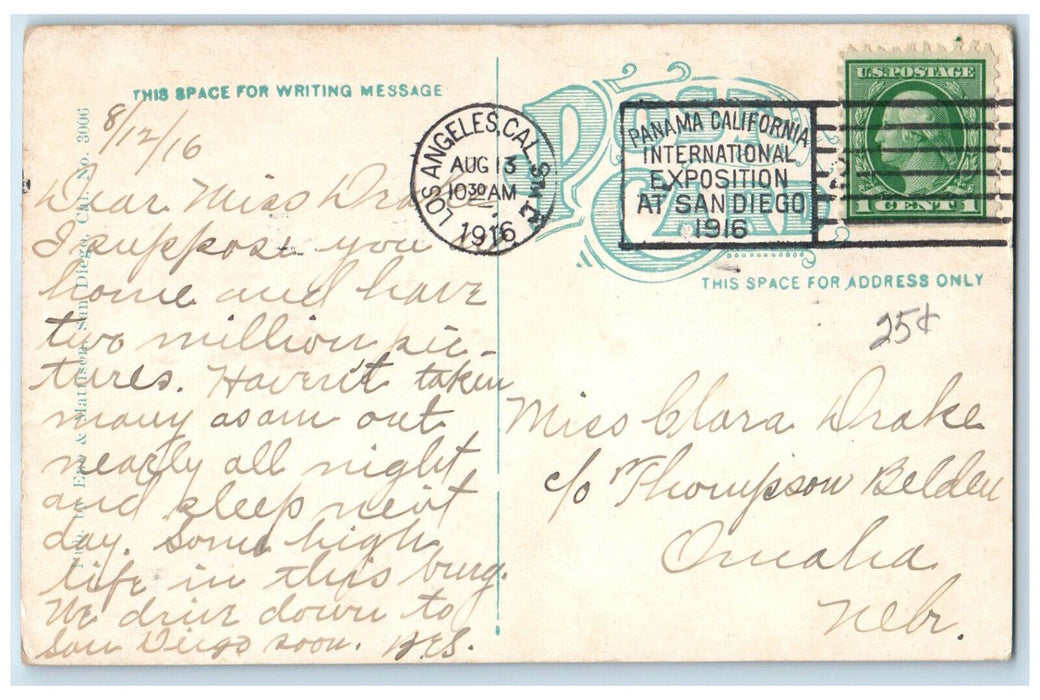 THIS SPACE FOR WRITING MESSAGE
8/12/16
Dear Miss Dra
I suppose you
home and have
two million pic-
tures. Haven't taken
many as am out
nearly all night
and sleep next
day. Some high
life in this burg.
We drive down to
San Diego soon. H.E.S.
Pub. by Eno & Matteson, San Diego, Cal. No. 3006
LOS ANGELES, CAL.
AUG 13
10 30 AM
1916
PANAMA CALIFORNIA
INTERNATIONAL
EXPOSITION
AT SAN DIEGO
1916
POST
CARD
U.S. POSTAGE
1 CENT 1
THIS SPACE FOR ADDRESS ONLY
25¢
Miss Clara Drake
c/o Thompson Belden
Omaha
Nebr.